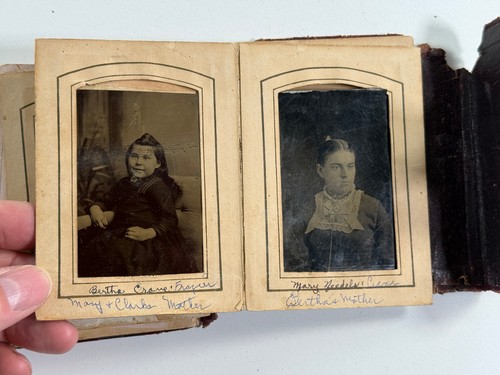 Bertha Crane Frazier
Mary & Clarks Mother
Mary Needels Crane
Bertha's Mother